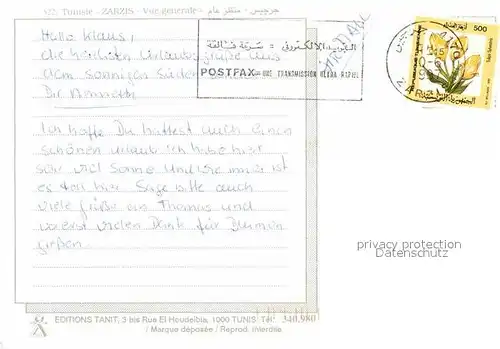 322. Tunisie - ZARZIS - Vue generale - جرجيس - منظر عام
Hallo Klaus,
die herzlichsten Urlaubsgrüße aus
dem sonnigen Süden
Dir
Ich hoffe Du hattest auch einen
schönen Urlaub. Ich habe hier
sehr viel Sonne und wie immer ist
es toll hier. Sage bitte auch
viele Grüße an Thomas und
vorerst vielen Dank für Blumen
gießen.
البريد الالكتروني = سرعة فائقة
POSTFAX = UNE TRANSMISSION ULTRA RAPIDE
500
privacy protection
Datenschutz
EDITIONS TANIT, 3 bis Rue El Houdeibia, 1000 TUNIS Tél: 340.980
/ Marque déposée / Reprod. interdite